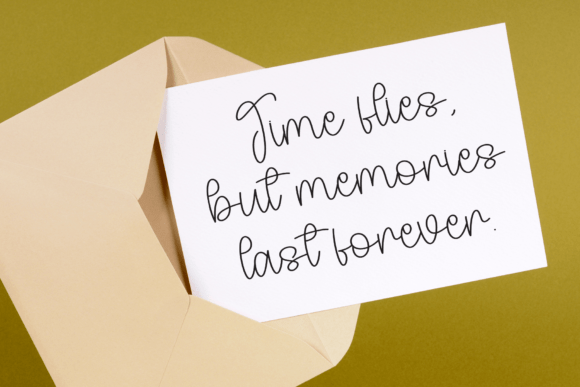 Time flies,
but memories
last forever.